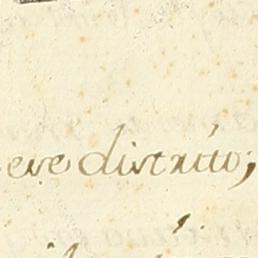 ese distrito;